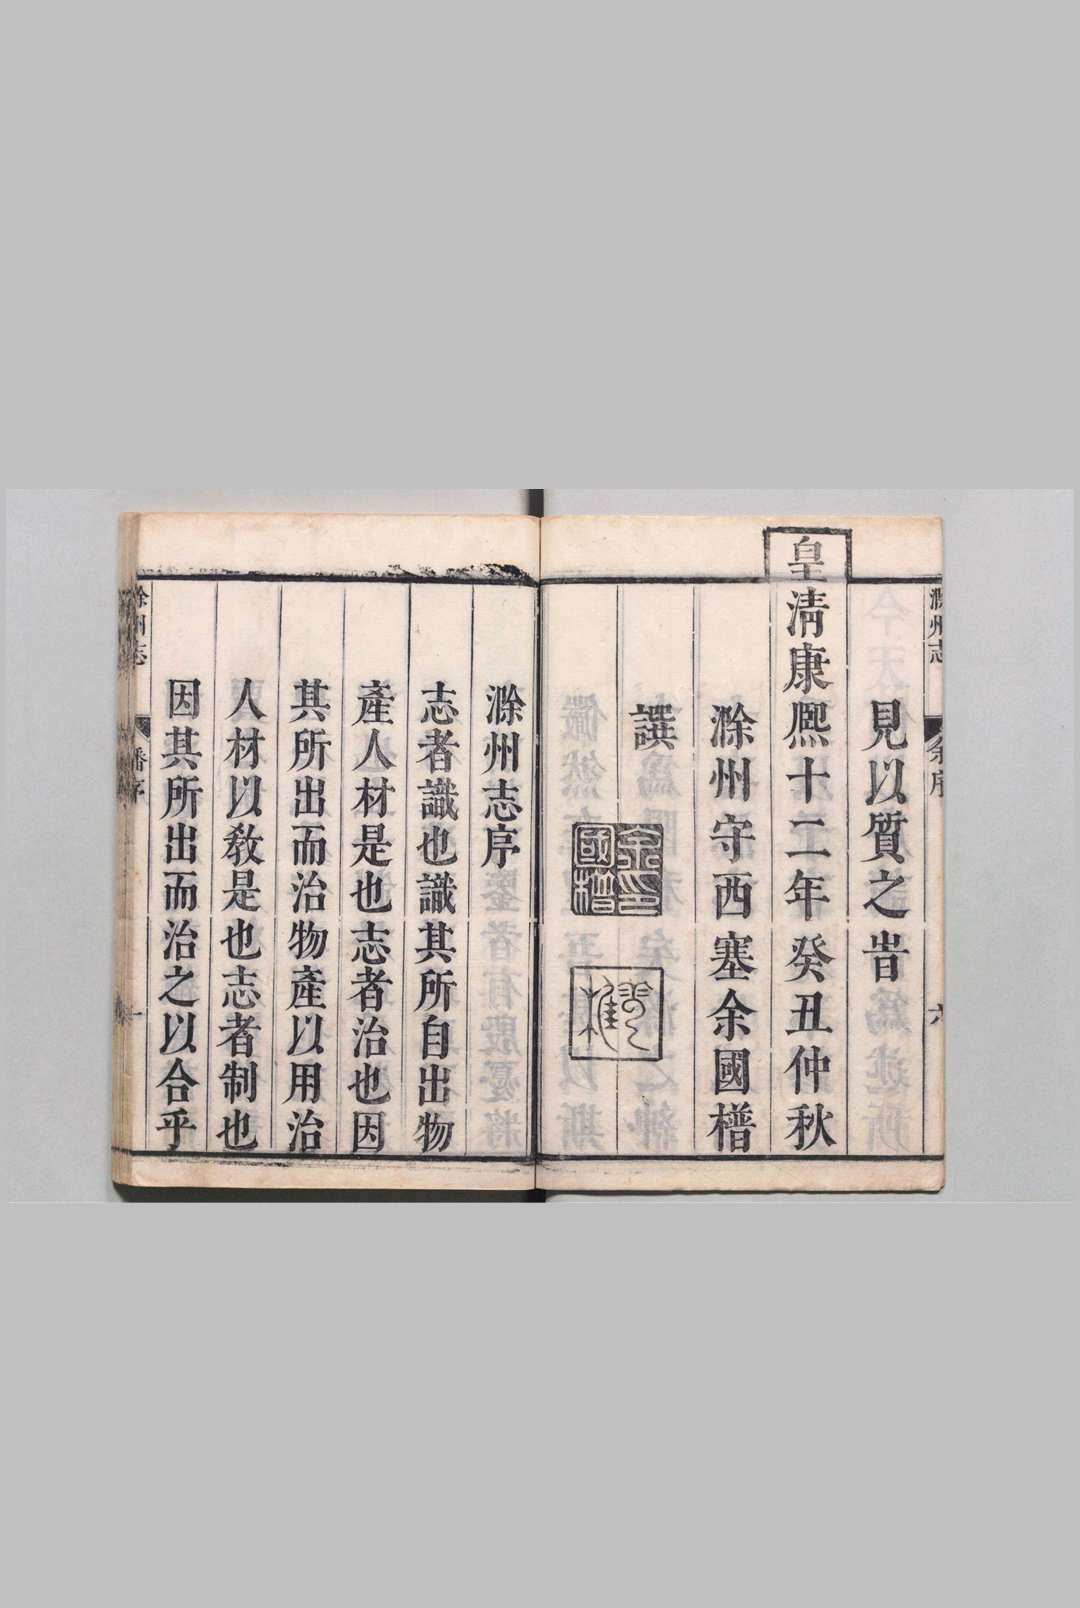 滁州志
余序
六
見以質之旹
皇清康熙十二年癸丑仲秋
滁州守西塞余國㯺
譔
余國㯺印
滁州志序
志者識也識其所自出物
產人材是也志者治也因
其所出而治物產以用治
人材以敎是也志者制也
因其所出而治之以合乎
州志
序
一